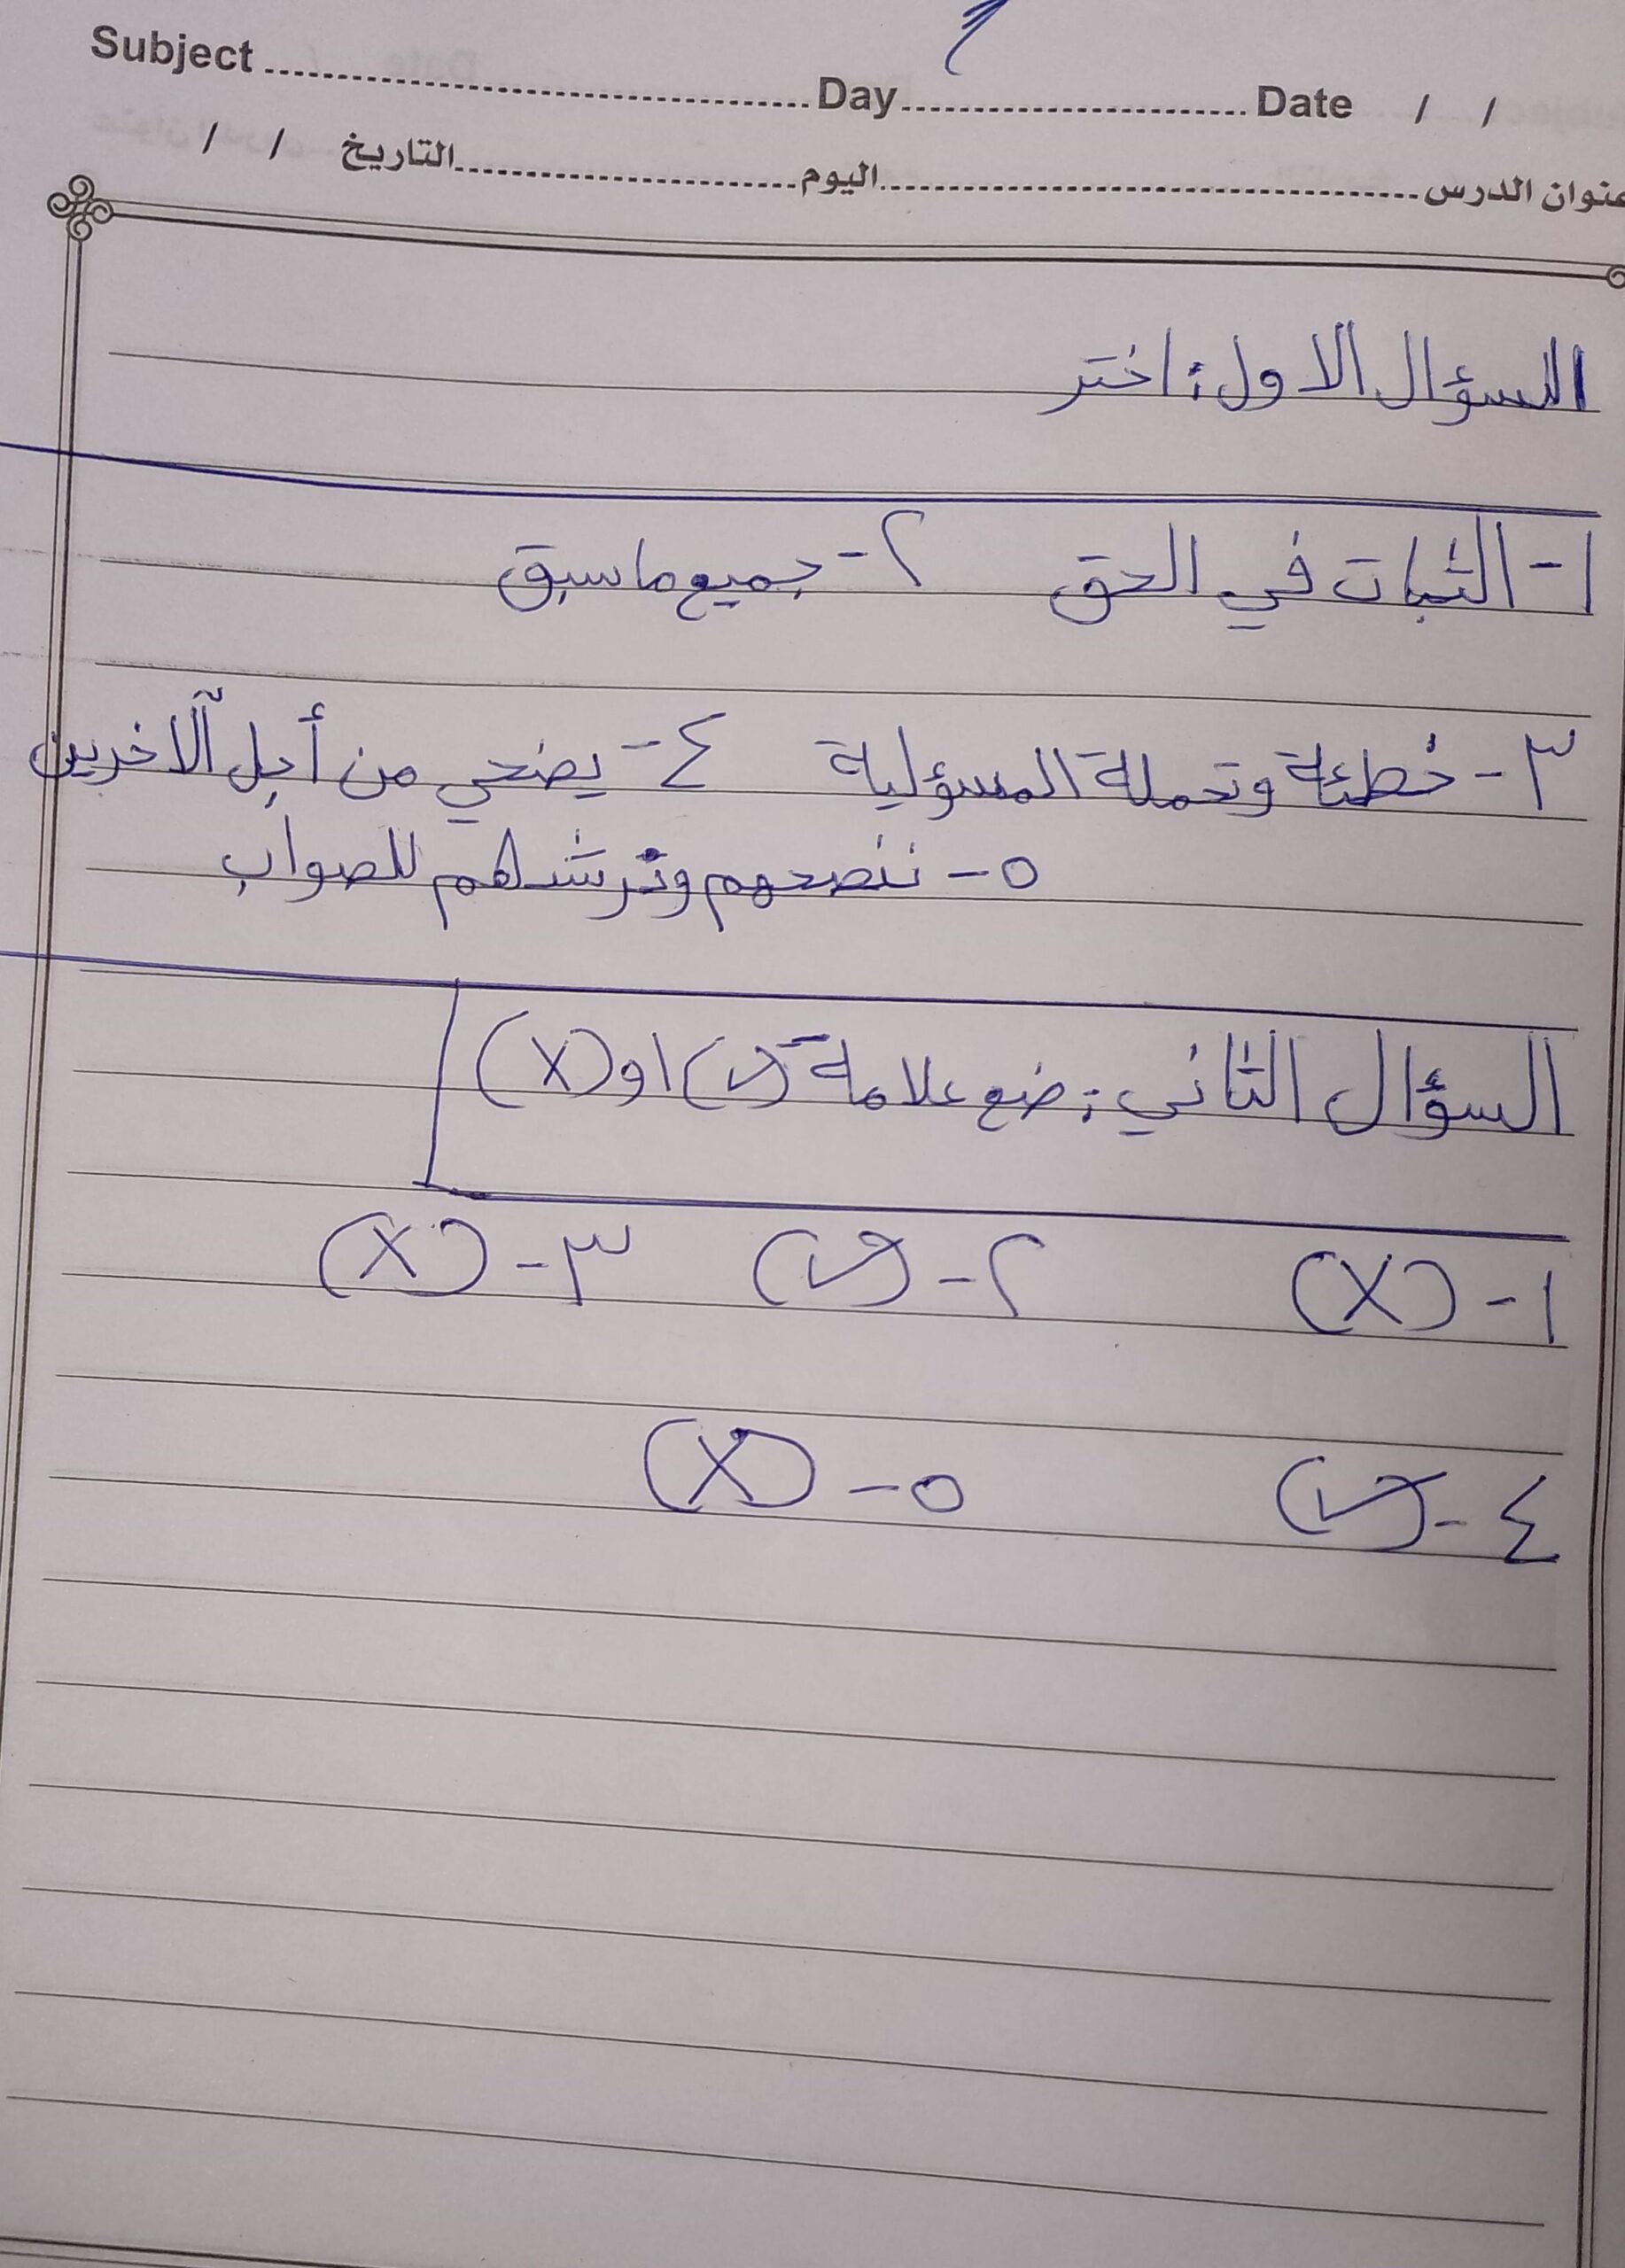 Subject ........ Day ........ Date / /
عنوان الدرس ........ اليوم ........ التاريخ / /
السؤال الاول: اختر
١- الثبات في الحق ٢- جميع ما سبق
٣- خطئة وتحملة المسؤولية ٤- يضحي من أجل الآخرين
٥- ننصحهم ونرشدهم للصواب
السؤال الثاني: ضع علامة (✓) او (X)
١- (X) ٢- (✓) ٣- (X)
٤- (✓) ٥- (X)